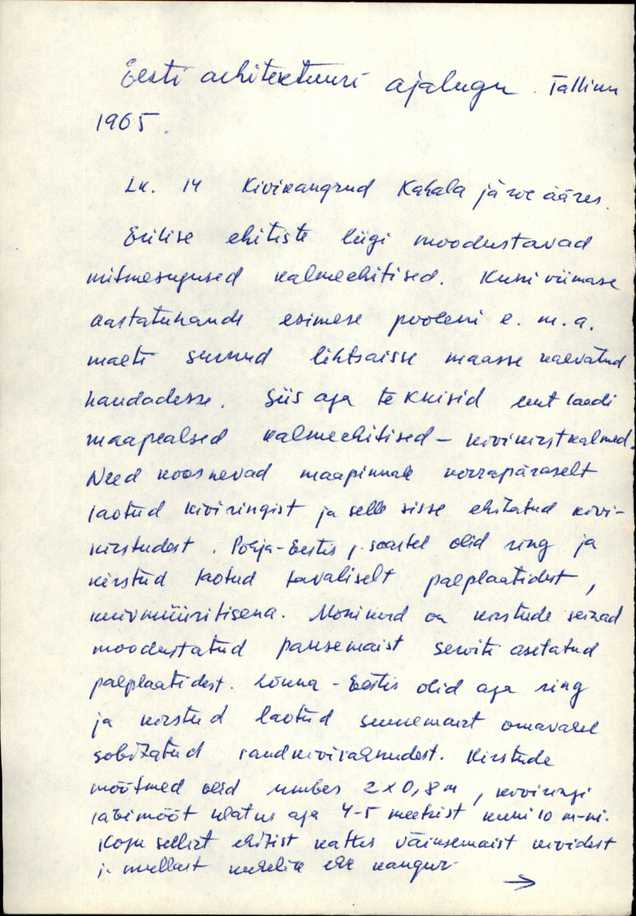 Eesti arhitektuuri ajalugu. Tallinn
1965.
Lk. 14 Kivikangrud Kahala järve ääres.
Erilise ehitiste liigi moodustavad
mitmesugused kalmeehitised. Kuni viimase
aastatuhande esimese pooleni e. m. a.
maeti surnud lihtsaisse maasse kaevatud
haudadesse. Siis aga tekkisid uut laadi
maapealsed kalmeehitised – kivikirstkalmed.
Need koosnevad maapinnale korrapäraselt
laotud kiviringist ja selle sisse ehitatud kivi-
kirstudest. Põhja-Eestis, saartel olid ring ja
kirstud laotud tavaliselt paeplaatidest,
kuivmüüritisena. Mõnikord on kirstude seinad
moodustatud paksemaist serviti asetatud
paeplaatidest. Lõuna-Eestis olid aga ring
ja kirstud laotud suuremaist omavahel
sobitatud raudkivirahnudest. Kirstude
mõõtmed olid umbes 2x0,8 m, kiviringi
läbimõõt ulatus aga 4-5 meetrist kuni 10 m-ni.
Kogu sellist ehitist kattis väiksemaist kividest
j. mullast kuhelik ehk kangur
→